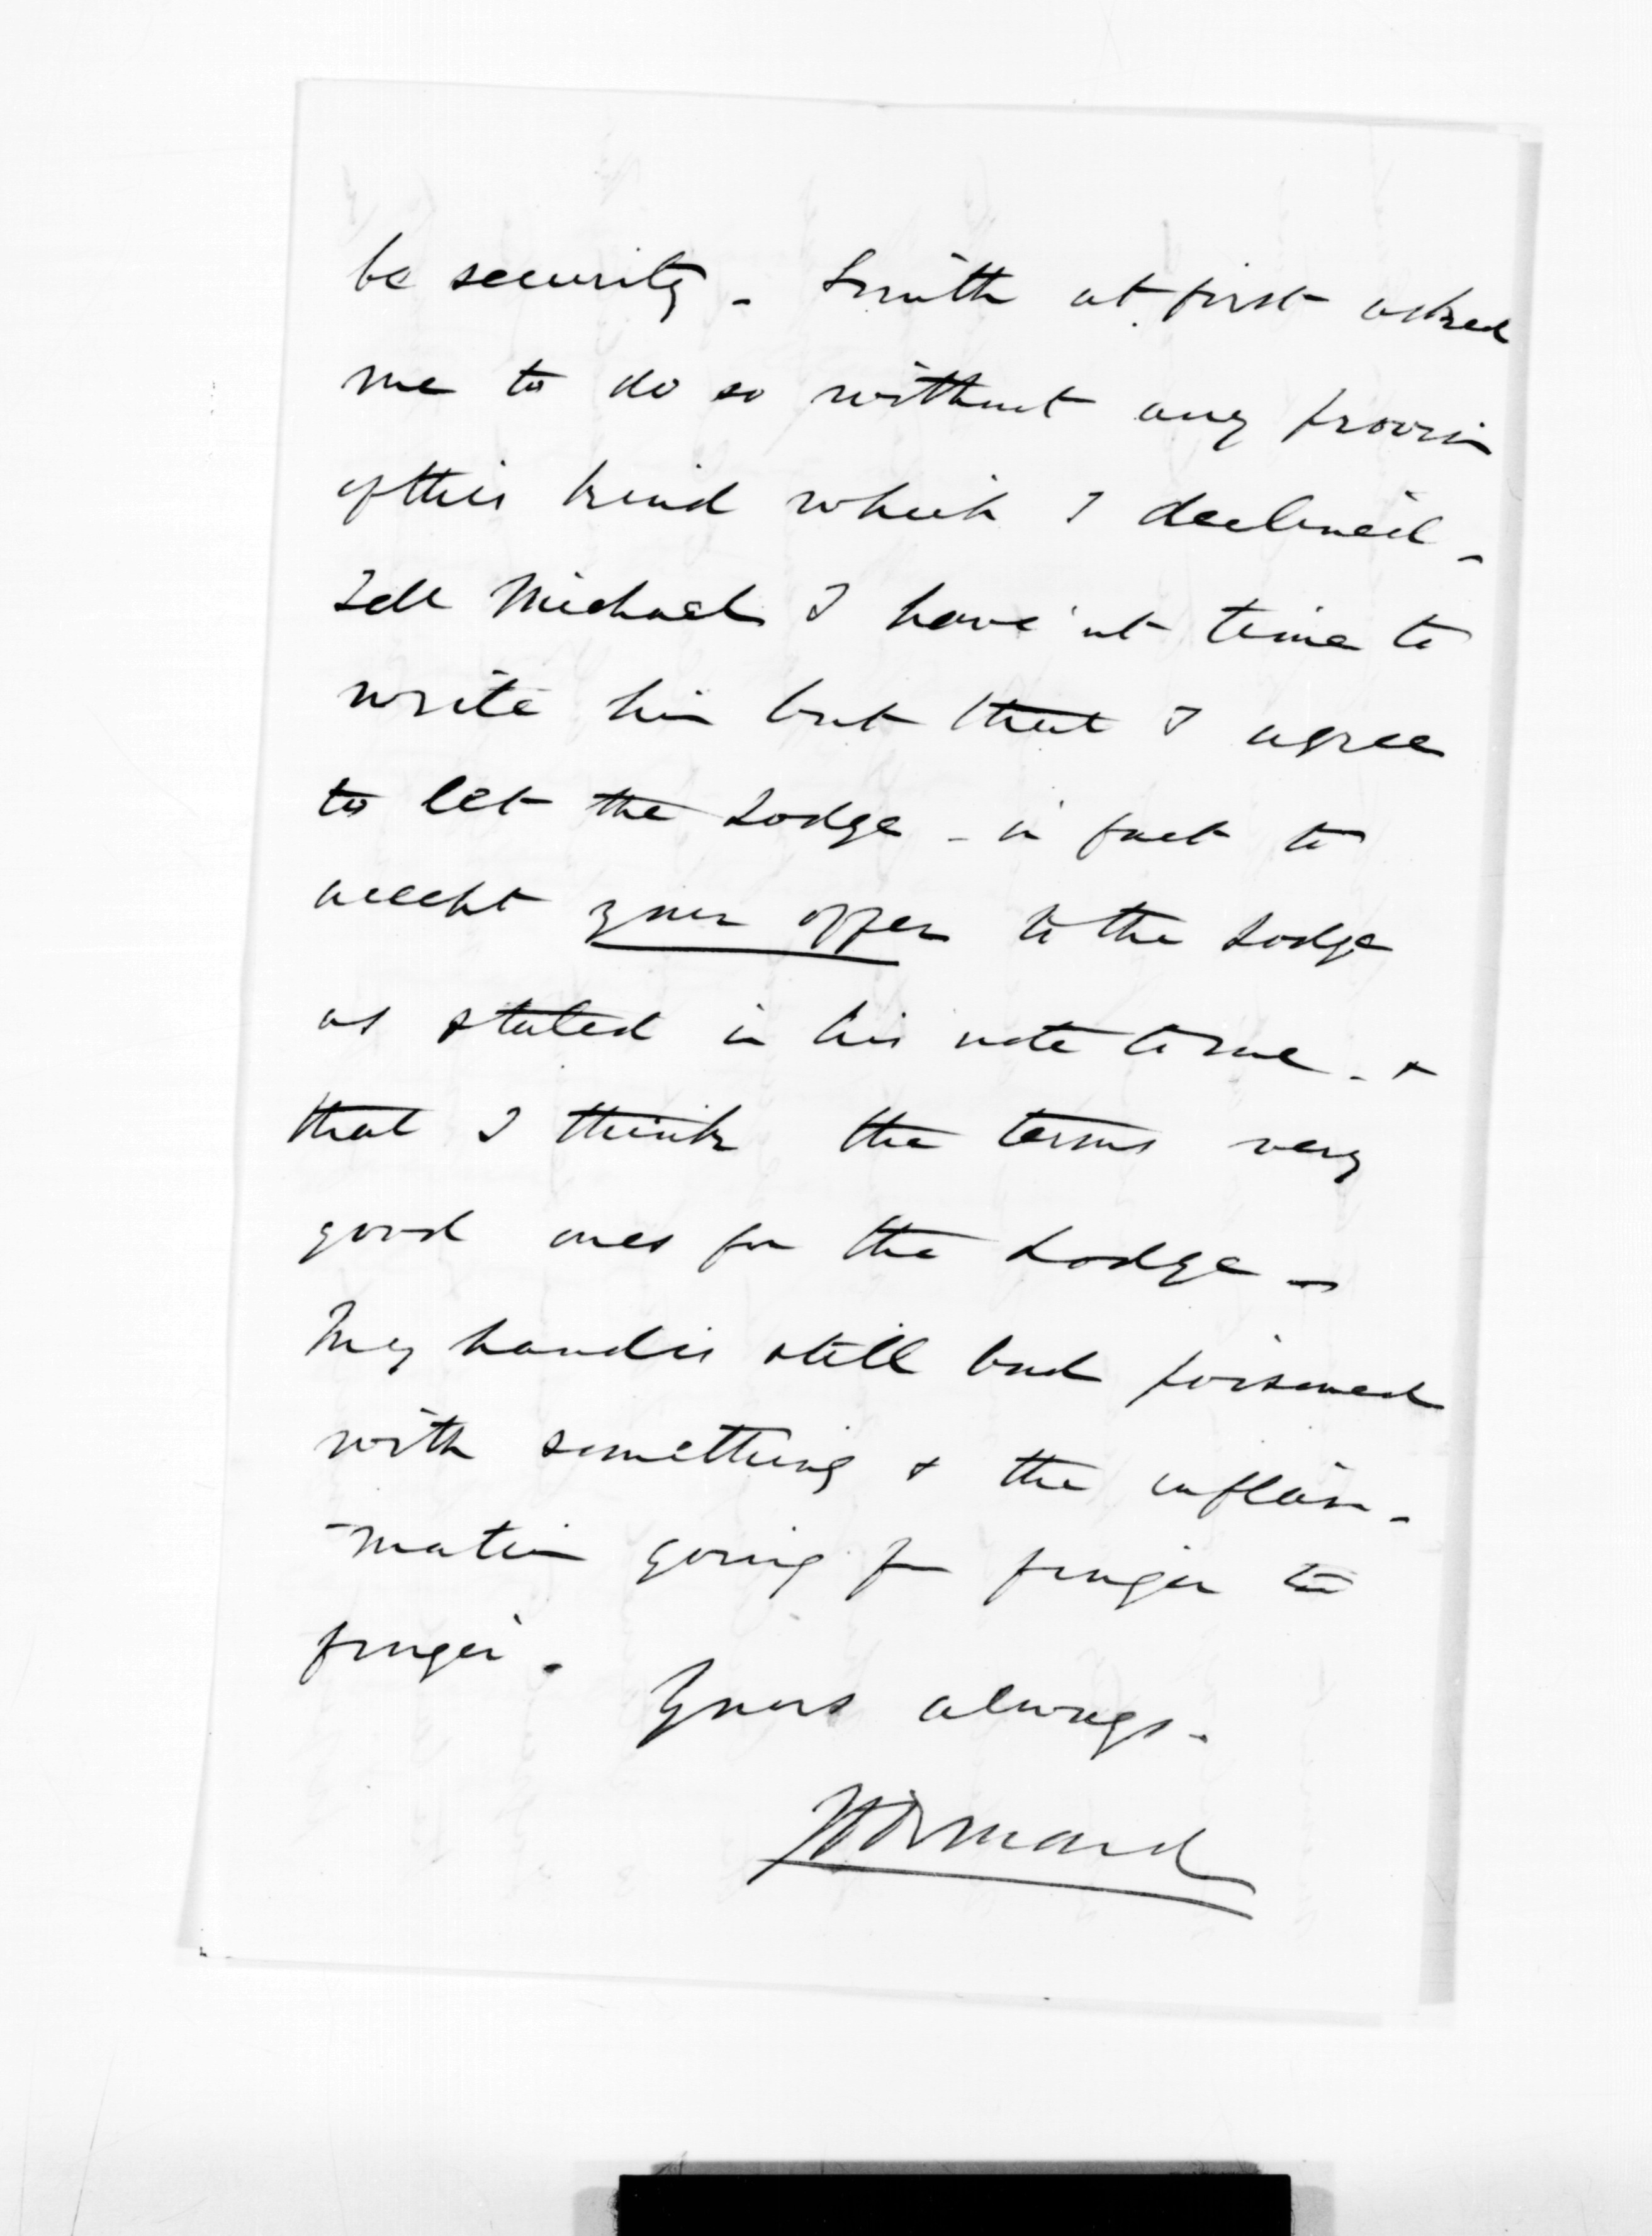 be security - Smith at first asked
me to do so without any provisn
of this kind which I declined -
Tell Michael I have'nt time to
write him but that I agree
to let the Lodge - in fact to
accept your offer to the Lodge
as stated in his note to me - +
that I think the terms very
good ones for the Lodge -
My hand is still bad poisoned
with something + the inflam-
-mation going fm finger to
finger -
Yours always -